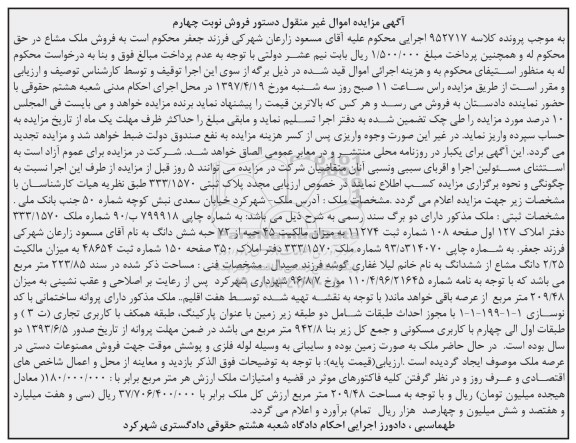 آگهی مزایده اموال غیر منقول دستور فروش نوبت چهارم
به موجب پرونده کلاسه ۹۵۲۷۱۷ اجرایی محکوم علیه آقای مسعود زارعان شهرکی فرزند جعفر محکوم است به فروش ملک مشاع در حق
محکوم له و همچنین پرداخت مبلغ ۱/۵۰۰/۰۰۰ ریال بابت نیم عشر دولتی با توجه به عدم پرداخت مبالغ فوق و بنا به درخواست محکوم
له به منظور استیفای محکوم به و هزینه اجرائی اموال قید شده در ذیل برگه از سوی این اجرا توقیف و توسط کارشناس توصیف و ارزیابی
و مقرر است از طریق مزایده راس ساعت ۱۱ صبح روز سه شنبه مورخ ۱۳۹۷/۴/۱۹ در محل اجرای احکام مدنی شعبه هشتم حقوقی با
حضور نماینده دادستان به فروش می رسد و هر کس که بالاترین قیمت را پیشنهاد نماید برنده مزایده خواهد و می بایست فی المجلس
۱۰ درصد مورد مزایده را طی چک تضمین شده به دفتر اجرا تسلیم نماید و مابقی مبلغ را حداکثر ظرف مهلت یک ماه از تاریخ مزایده به
حساب سپرده واریز نماید. در غیر این صورت وجوه واریزی پس از کسر هزینه مزایده به نفع صندوق دولت ضبط خواهد شد و مزایده تجدید
می گردد. این آگهی برای یکبار در روزنامه محلی منتشر و در معابر عمومی الصاق خواهد شد. شرکت در مزایده برای عموم آزاد است به
استثنای مسئولین اجرا و اقربای سببی ونسبی آنان متقاضیان شرکت در مزایده می توانند ۵ روز قبل از مزایده از طرف این اجرا نسبت به
چگونگی و نحوه برگزاری مزایده کسب اطلاع نمایند در خصوص ارزیابی مجدد پلاک ثبتی ۳۳۳/۱۵۷۰ طبق نظریه هیات کارشناسان با
مشخصات زیر جهت مزایده اعلام می گردد .مشخصات ملک : آدرس ملک _ شهرکرد خیابان سعدی نبش کوچه شماره ۵۰ جنب بانک ملی .
مشخصات ثبتی : ملک مذکور دارای دو برگ سند رسمی به شرح ذیل می باشد: به شماره چاپی ۷۹۹۹۱۸ ب/۹۰ شماره ملک ۳۳۳/۱۵۷۰
دفتر املاک ۱۲۷ اول صفحه ۱۰۸ شماره ثبت ۱۱۲۷۴ به میزان مالکیت ۴۵ حبه از ۷۲ حبه شش دانگ به نام آقای مسعود زارعان شهرکی
فرزند جعفر. به شماره چاپی ۹۳/د۳۱۴۰۷۰ شماره ملک ۳۳۳/۱۵۷۰ دفتر املاک ۳۵۰ صفحه ۱۵۰ شماره ثبت ۴۸۶۵۴ به میزان مالکیت
۲/۲۵ دانگ مشاع از ششدانگ به نام خانم لیلا غفاری گوشه فرزند صیدال _ مشخصات فنی : مساحت ذکر شده در سند ۲۲۳/۸۵ متر مربع
می باشد که با توجه به نامه شماره ۱۱۰/۴/۹۶/۲۱۶۴۵ مورخ ۹۶/۸/۷ شهرداری شهرکرد  پس از رعایت بر اصلاحی و عقب نشینی به میزان
۲۰۹/۴۸ متر مربع  از عرصه باقی خواهد ماند( با توجه به نقشه تهیه شده توسط هفت اقلیم.. ملک مذکور دارای پروانه ساختمانی با کد
نوسازی ۱-۱-۱۹۹-۱-۱ با مجوز احداث طبقات شامل دو طبقه زیر زمین با عنوان پارکینگ، طبقه همکف با کاربری تجاری (ت ۳ ) و
طبقات اول الی چهارم با کاربری مسکونی و جمع کل زیر بنا ۹۴۲/۸ متر مربع می باشد در ضمن مهلت پروانه از تاریخ صدور ۱۳۹۳/۶/۵ دو
سال بوده است.  در حال حاضر ملک به صورت زمین بوده و سایبانی به وسیله لوله فلزی و پوشش موقت جهت فروش مصنوعات دستی در
عرصه ملک موصوف ایجاد گردیده است .ارزیابی(قیمت پایه): با توجه به توضیحات فوق الذکر بازدید و معاینه از محل و اعمال شاخص های
اقتصادی و عرف روز و در نظر گرفتن کلیه فاکتورهای موثر در قضیه و امتیازات ملک ارزش هر متر مربع برابر با : ۱۸۰/۰۰۰/۰۰۰( معادل
هیجده میلیون تومان) ریال و با توجه به مساحت ۲۰۹/۴۸ متر مربع ارزش کل ملک برابر با ۳۷/۷۰۶/۴۰۰/۰۰۰ ریال (سی و هفت میلیارد
و هفتصد و شش میلیون و چهارصد  هزار ریال  تمام) برآورد و اعلام می گردد.
طهماسبی ، دادورز اجرایی احکام دادگاه شعبه هشتم حقوقی دادگستری شهرکرد